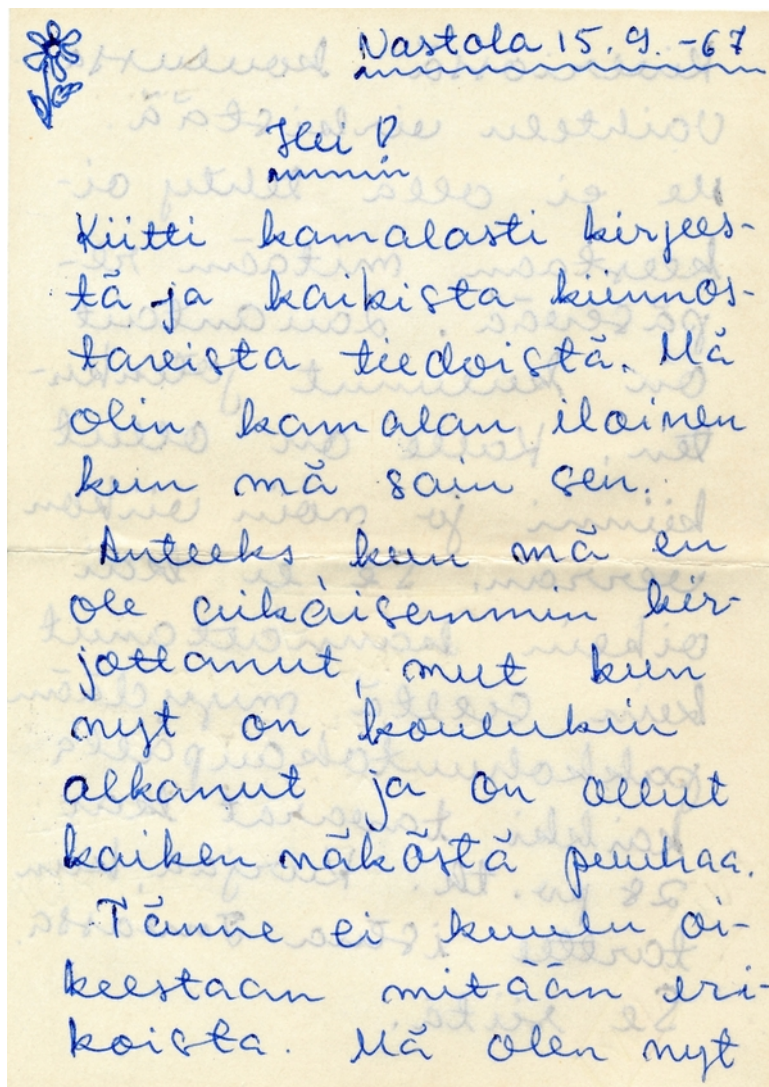 Nastola 15.9. -67
Hei!
Kiitti kamalasti kirjees-
tä ja kaikista kiinnos-
tavista tiedoistä. Mä
olin kamalan iloinen
kun mä sain sen.
Anteeks kun mä en
ole aikaisemmin kir-
jottanut, mut kun
nyt on koulukin
alkanut ja on ollut
kaiken näköstä puuhaa.
Tänne ei kuulu oi-
keestaan mitään eri-
koista. Mä olen nyt